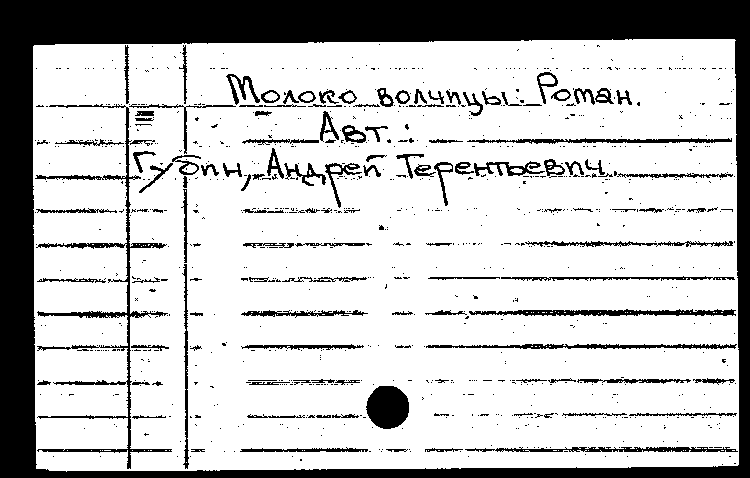 Молоко волчицы: Роман.
Авт.:
Губин, Андрей Терентьевич.